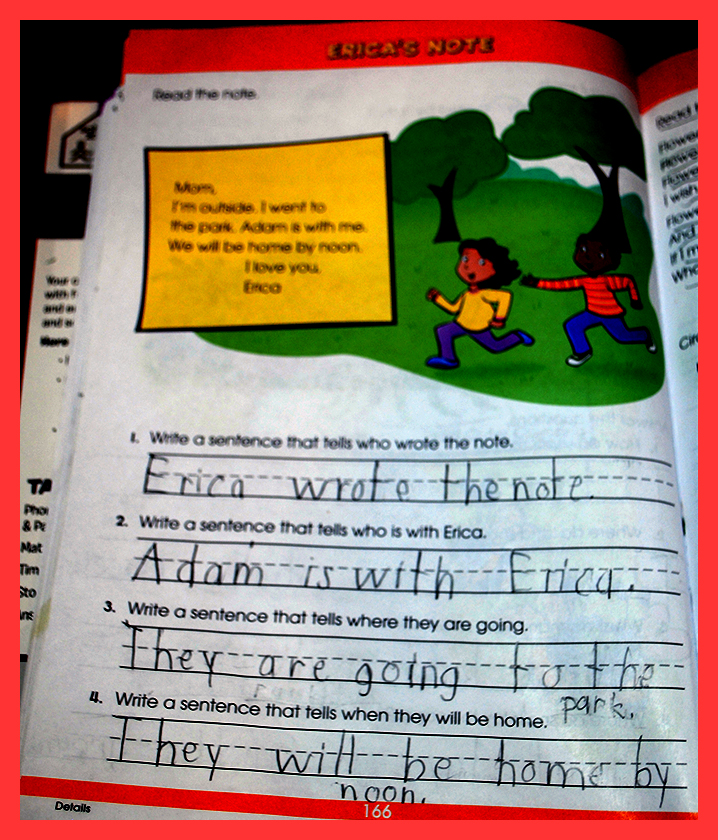 ERICA'S NOTE
Read the note.
Mom,
I'm outside. I went to
the park. Adam is with me.
We will be home by noon.
I love you,
Erica
1. Write a sentence that tells who wrote the note.
Erica wrote the note.
2. Write a sentence that tells who is with Erica.
Adam is with Erica.
3. Write a sentence that tells where they are going.
They are going to the
park.
4. Write a sentence that tells when they will be home.
They will be home by
noon.
Details
166
Your
with
and
and
More
TA
Phon
& Pr
Mat
Tim
Sto
Ans
Read
Flower
I wish
And
If I'm
Cir